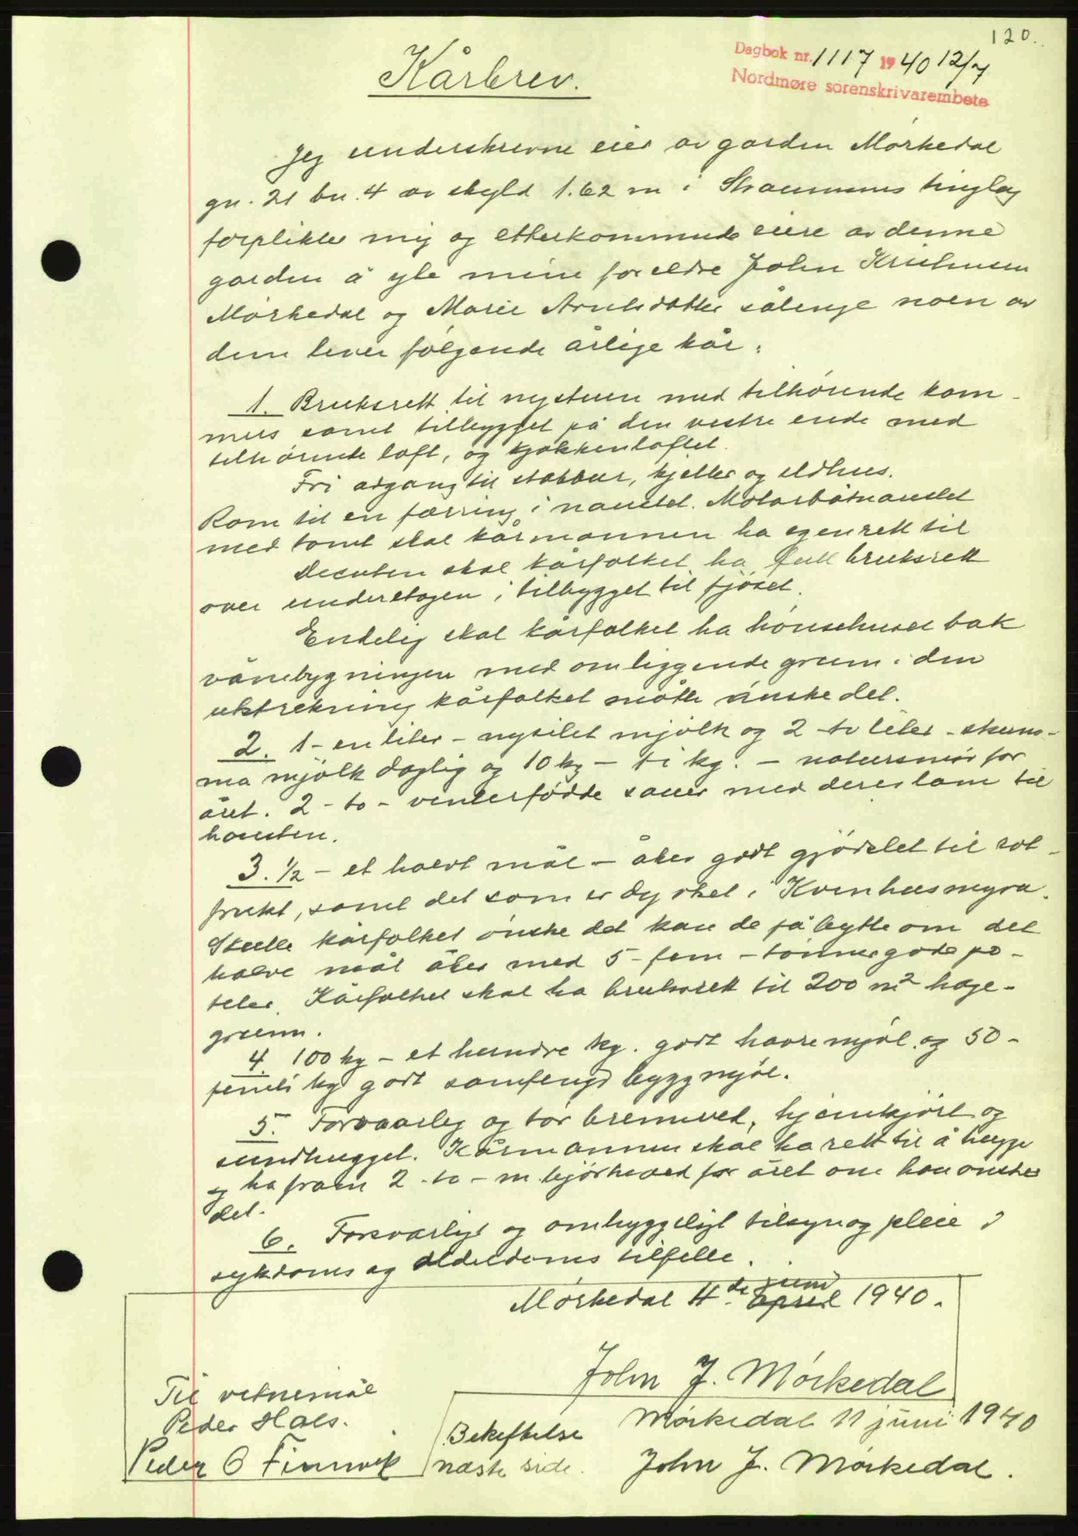 120.
Dagbok nr. 1117 1940 12/7
Nordmøre sorenskrivarembete
Kårbrev.
Jeg underskrevne eier av garden Mørkedal
gn. 21 bn. 4 av skyld 1.62 m i Straumsnes tinglag
forplikter mig og etterkommende eiere av denne
garden å yte mine foreldre John Kristensen
Mørkedal og Marie Arntsdatter sålenge noen av
dem lever følgende årlige kår:
1. Bruksrett til nystuen med tilhørende kam-
mers samt tilbygget på den vestre ende med
tilhørende loft, og kjøkkenloftet.
Fri adgang til stabbur, kjeller og eldhus.
Rom til en færring i naustet. Motorbåtnaustet
med tomt skal kårmannen ha egenrett til
Desuten skal kårfolket ha full bruksrett
over underetagen i tilbygget til fjøset.
Endelig skal kårfolket ha hønsehuset bak
vånebygningen med omliggende grunn i den
utstrekning kårfolket måtte ønske det.
2. 1 - en liter - nysilet mjølk og 2 - to liter - skum-
ma mjølk daglig og 10 kg - ti kg. - natursmør for
året. 2 - to - vinterfødde sauer med deres lam til
høusten.
3. 1/2 - et halvt mål - åker godt gjødslet til rot-
frukt, samt det som er dyrket i Kvenhusmyra.
Skulle kårfolket ønske det kan de få bytte om det
halve mål åker med 5 - fem - tønner gode po-
teter. Kårfolket skal ha bruksrett til 200 m² hage-
grunn.
4. 100 kg - et hundre kg. godt havremjøl og 50 -
femti kg godt samfengt byggmjøl.
5. Forsvarlig og tør brenneved, hjemkjørt og
sundhugget. Kårmannen skal ha rett til å hugge
og ta fram 2 - to - m bjørkeved for året om han ønsker
det.
6. Forsvarligt og omhyggeligt tilsyn og pleie i
sykdoms og alderdoms tilfelle.
Mørkedal 4de april juni 1940.
John J. Mørkedal
Til vitnemål
Peder Hals.
Peder O Finnvik
Bekreftelse
næste side.
Mørkedal 11 juni 1940
John J. Mørkedal.